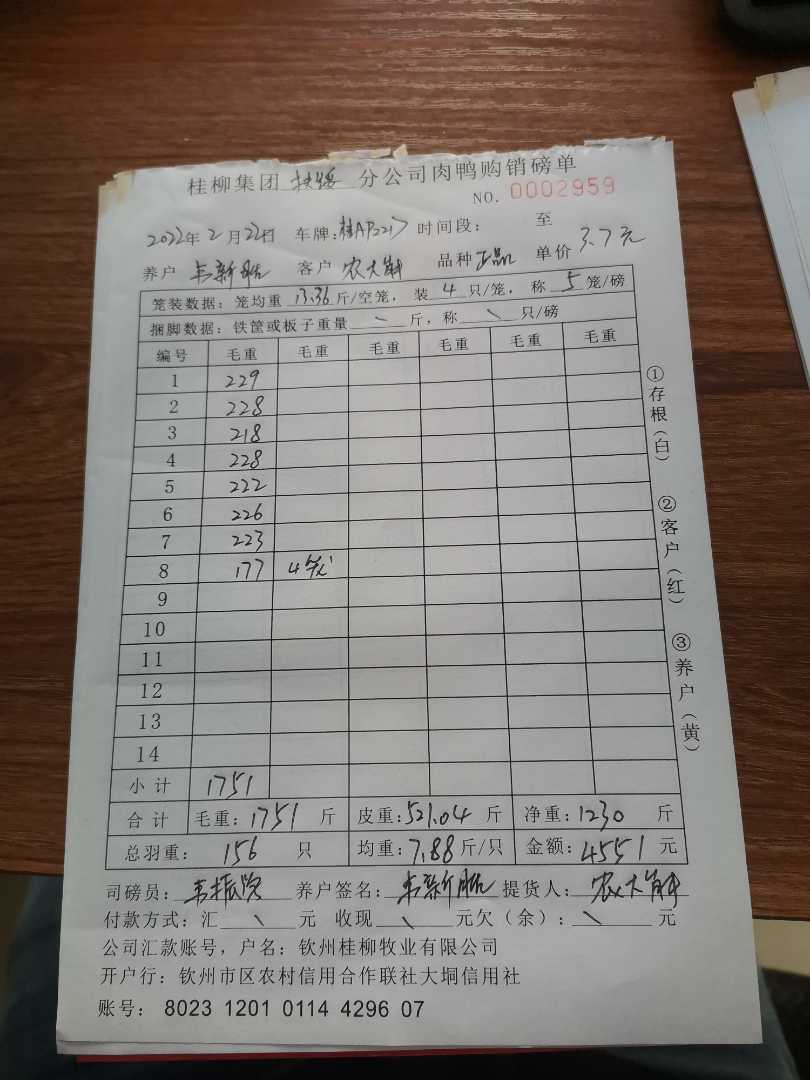 桂柳集团 扶绥 分公司肉鸭购销磅单
NO. 0002959
2022年2月22日 车牌:桂AP2217 时间段: 至
养户 韦新 客户 农大 品种 正品 单价 3.7元
笼装数据: 笼均重 13.36 斤/空笼, 装 4 只/笼, 称 5 笼/磅
捆脚数据: 铁筐或板子重量 \ 斤, 称 \ 只/磅
编号 毛重 毛重 毛重 毛重 毛重 毛重
1 229
2 228
3 218
4 228
5 222
6 226
7 223
8 177 4
9
10
11
12
13
14
小计 1751
合计 毛重: 1751 斤 皮重: 521.04 斤 净重: 1230 斤
总羽重: 156 只 均重: 7.88 斤/只 金额: 4551 元
司磅员: 韦振 养户签名: 韦新 提货人: 农大
付款方式: 汇 \ 元 收现 \ 元欠(余): \ 元
公司汇款账号, 户名: 钦州桂柳牧业有限公司
开户行: 钦州市区农村信用合作联社大垌信用社
账号: 8023 1201 0114 4296 07
①存根(白)
②客户(红)
③养户(黄)